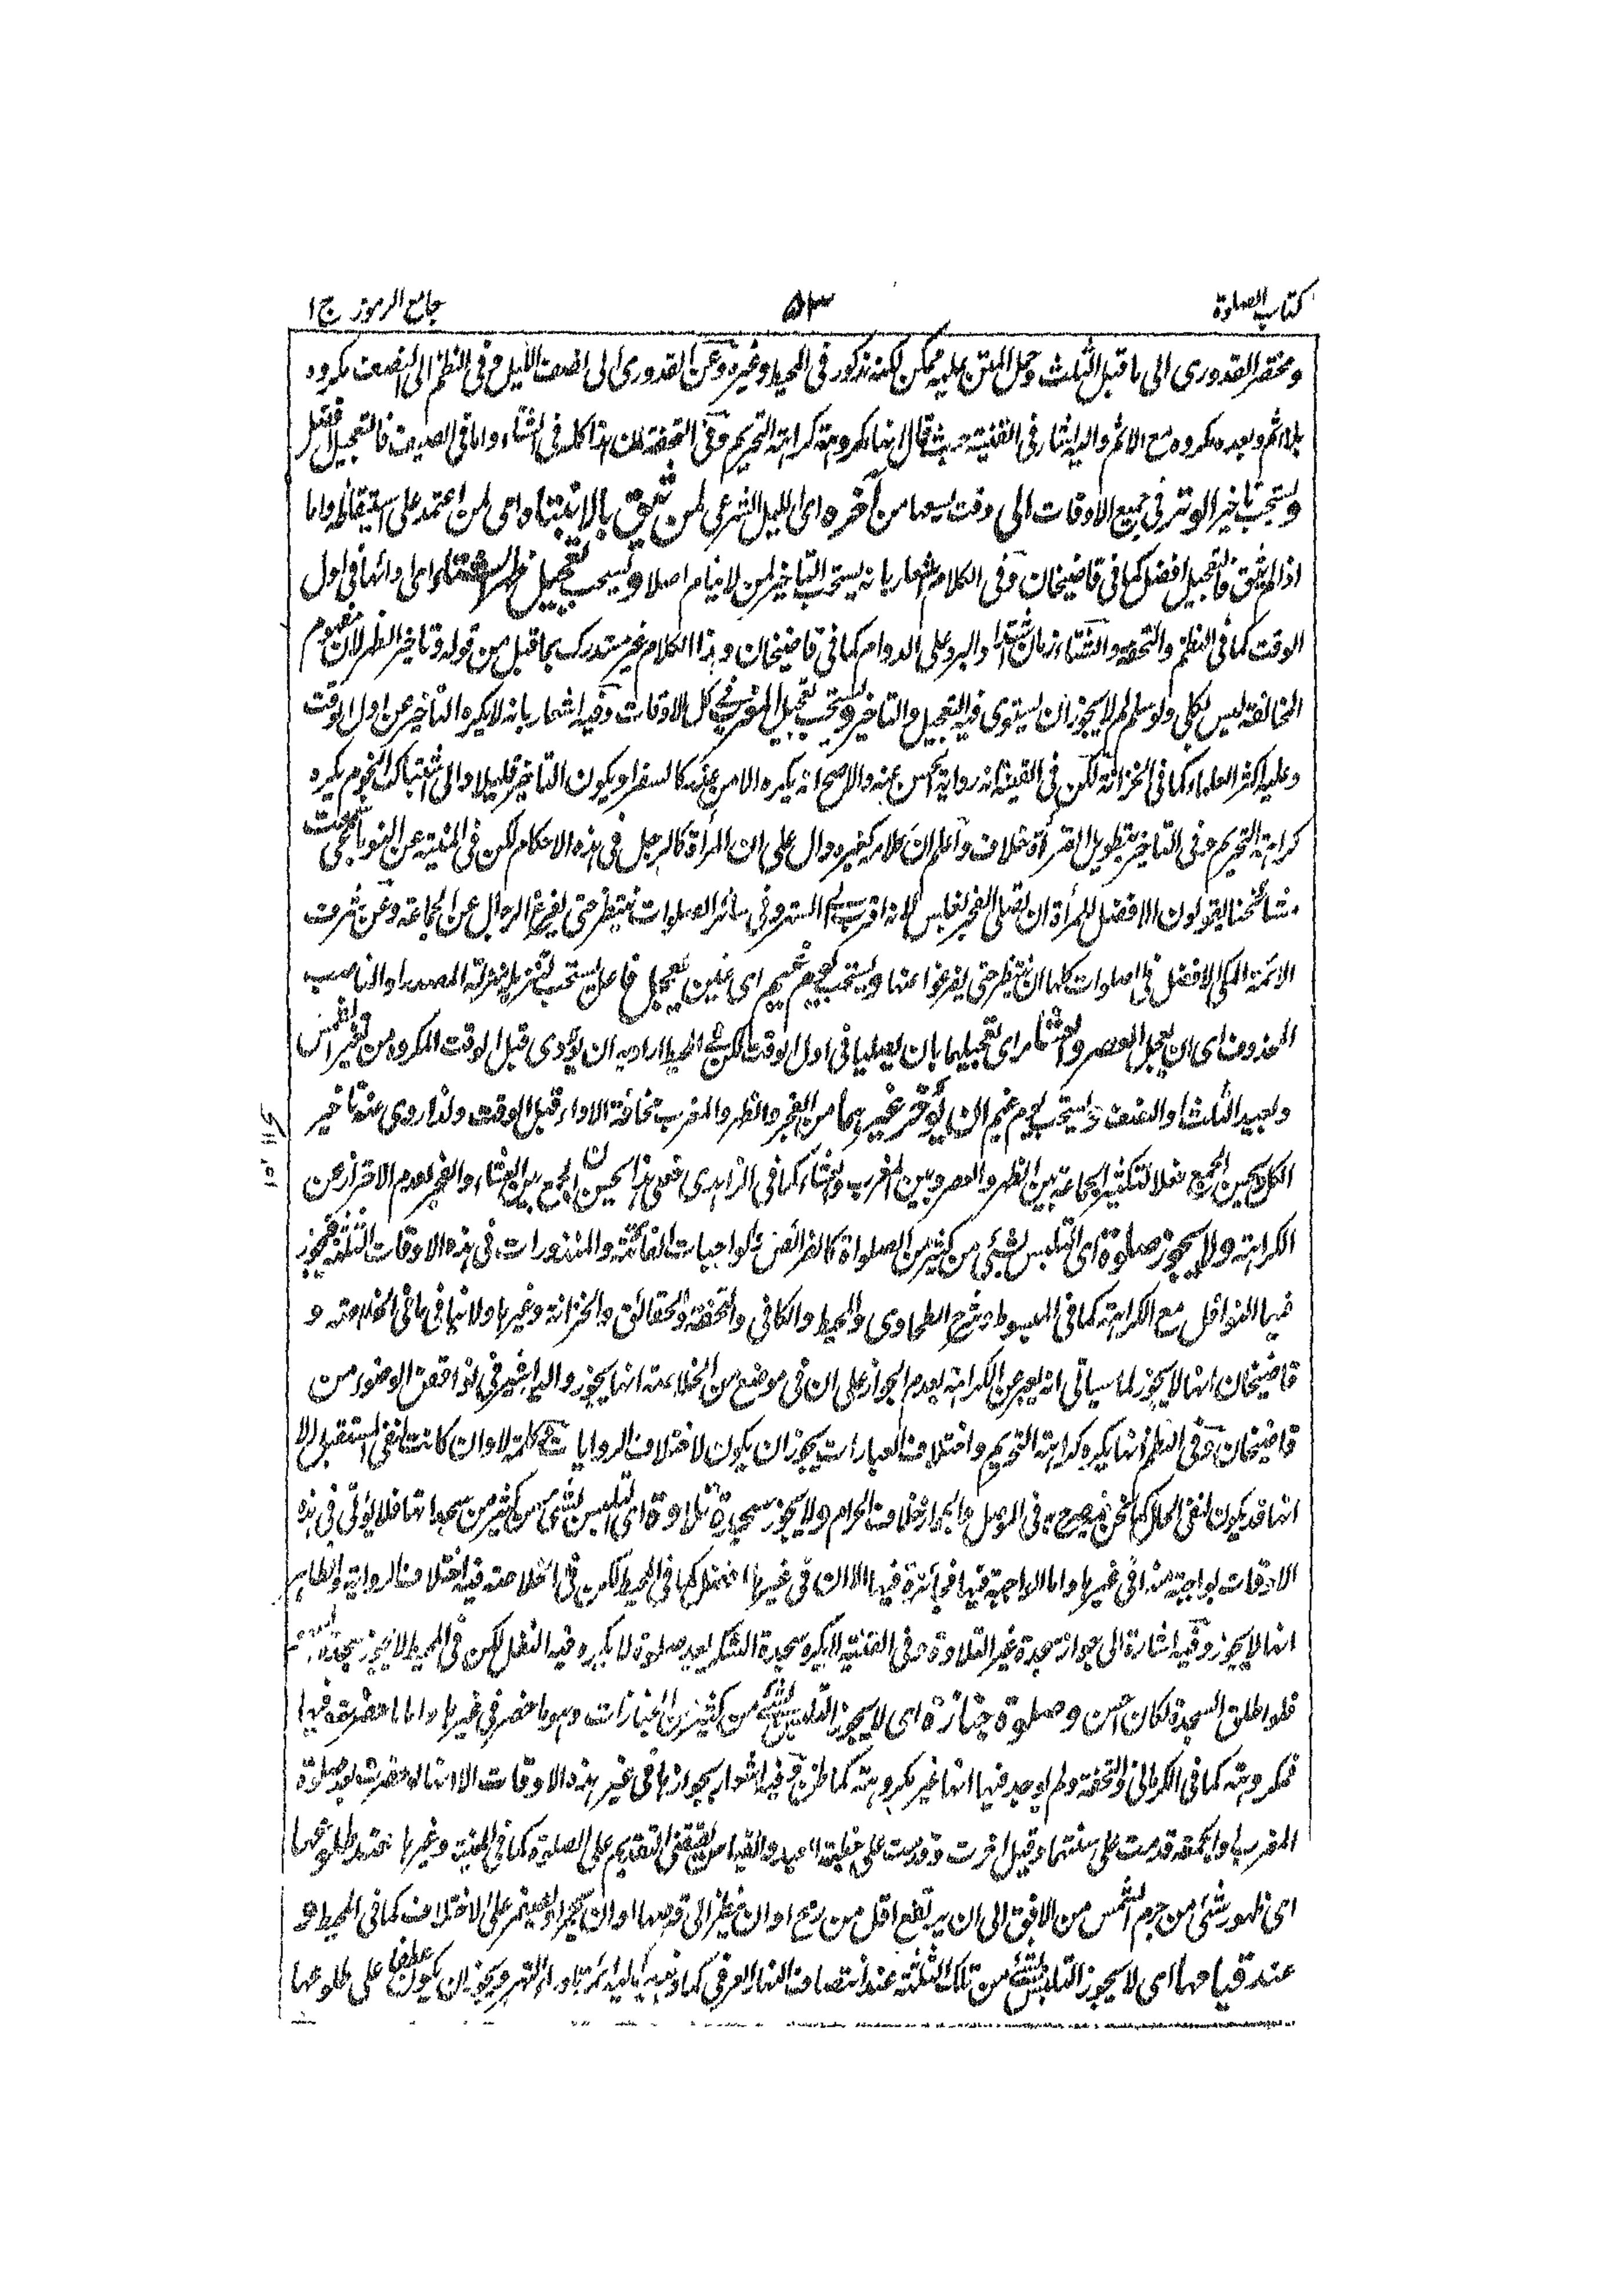 كتاب الصلوة ٥٣ جامع الرموز ج ١
ومختصر القدورى الى ما قبل الثلث وحمل المتن عليه ممكن لكنه مذكور فى المحيط وغيره وعن القدورى الى نصف الليل وفى النظم الى النصف مكروه
بلا اثم وبعده مكروه مع الاثم واليه اشار فى القنية حيث قال انها مكروهة كراهة التحريم وفى التحفة ان هذا كله فى الشتاء واما فى الصيف فالتعجيل افضل
ويستحب تاخير الوتر فى جميع الاوقات الى وقت يسعها من آخره اى الليل الشرعى لمن يثق بالانتباه اى لمن اعتمد على استيقاظه واما
اذا لم يثق فالتعجيل افضل كما فى قاضيخان وفى الكلام اشعار بانه يستحب التاخير لمن لا ينام اصلا ويستحب تعجيل ظهر الشتاء اى اداؤها فى اول
الوقت كما فى النظم والتحفة والشتاء زمان اشتداد البرد على الدوام كما فى قاضيخان وهذا الكلام غير مستدرك بما قبل من قوله وتاخير الظهر لان مفهوم
المخالفة ليس بكلى ولو سلم لم لا يجوز ان يستوى فيه التعجيل والتاخير ويستحب تعجيل المغرب فى كل الاوقات وفيه اشعار بانه لا يكره التاخير عن اول الوقت
وعليه اكثر العلماء كما فى الخزانة لكن فى القنية انه رواية الحسن عنه والاصح انه يكره الا من عذر كالسفر او يكون التاخير قليلا والى اشتباك النجوم يكره
كراهة التحريم وفى التاخير بتطويل القرأة خلاف واعلم ان كلامه كغيره دال على ان المرأة كالرجل فى هذه الاحكام لكن فى المنية عن النوباجى سمعت
مشائخنا يقولون الافضل للمرأة ان تصلى الفجر بغلس لانه اقرب الى الستر وفى سائر الصلوات تنتظر حتى يفرغ الرجال عن الجماعة وعن شرف
الائمة المكى الافضل فى الصلوات كلها ان تنتظر حتى يفرغوا عنها ويستحب يوم غيم اى غين تعجيل فاعل يستحب لتنزيله منزلة المصدر او الناصب
المحذوف اى ان يعجل العصر والعشاء اى تعجيلهما بان يصليا فى اول الوقت لكن فى المحيط اراد به ان يؤدى قبل الوقت المكروه من تغير الشمس
وبعيد الثلث او النصف ويستحب يوم غيم ان يؤخر غيرهما من الفجر والظهر والمغرب مخافة الاداء قبل الوقت ولذا روى عنه تاخير
الكل ويحسن الجمع فعلا لتكثير الجماعة بين الظهر والعصر وبين المغرب والعشاء كما فى الزاهدى فعلى هذا يحسن الجمع بين العشاء والفجر لعدم الاحتراز عن
الكراهة ولا يجوز صلوة اى التلبس بشئ من كثير من الصلواة كالفرائض والواجبات الفائتة والمنذورات فى هذه الاوقات الثلثة فيجوز
فيها النوافل مع الكراهة كما فى المبسوط وشرح الطحاوى والمحيط والكافى والتحفة والحقائق والخزانة وغيرها ولا ينافى ما فى الخلاصة و
قاضيخان انها لا يجوز لما سيأتى انه يعبر عن الكراهة بعدم الجواز على ان فى موضع من الخلاصة انها يجوز واليه اشير فى نواقض الوضوء من
قاضيخان وفى النظم انها يكره كراهة التحريم واختلاف العبارات يجوز ان يكون لاختلاف الروايات ثم كلمة لا وان كانت لنفى المستقبل الا
انها قد يكون لنفى الحال كما نحن فيه صرح به فى الموصل والجواز خلاف الحرام ولا يجوز سجدة تلاوة اى التلبس بشئ من كثير من سجداتها فلا يؤتى فى هذه
الاوقات بواجبة منها فى غيرها واما الواجبة فيها فجائزة فيها الا ان فى غيرها افضل كما فى المحيط لكن فى الخلاصة فيه اختلاف الرواية والظاهر
انها لا يجوز وفيه اشارة الى جواز سجدة غير التلاوة وفى القنية لا يكره سجدة الشكر بعد صلوة لا يكره فيه النفل لكن فى المحيط لا يجوز سجدة
فلو اطلق السجدة لكان احسن وصلوة جنازة اى لا يجوز التلبس بشئ من كثير من الجنازات وهو ما حضر فى غيرها واما ما حضرت فيها
فمكروهة كما فى الكرمانى والتحفة ولم يوجد فيها انها غير مكروهة كما ظن وفيه اشعار بجوازها فى غير هذه الاوقات الا انها لو حضرت بعد صلوة
المغرب او الجمعة قدمت على سنتهما وقيل اخرت وقدمت على خطبة العيد والقياس يقتضى التقديم على الصلوة كما فى المنية وغيرها عند طلوعها
اى ظهور شئ من جرم الشمس من الافق الى ان يرتفع اقل من رمح او ان ينظر الى قرصها او ان يحمر او يصفر على الاختلاف كما فى المحيط و
عند قيامها اى لا يجوز التلبس بشئ من تلك الثلثة عند انتصاف النهار العرفى كما ذهب اليه ائمة ماوراء النهر ويجوز ان يكون عطفا على طلوعها